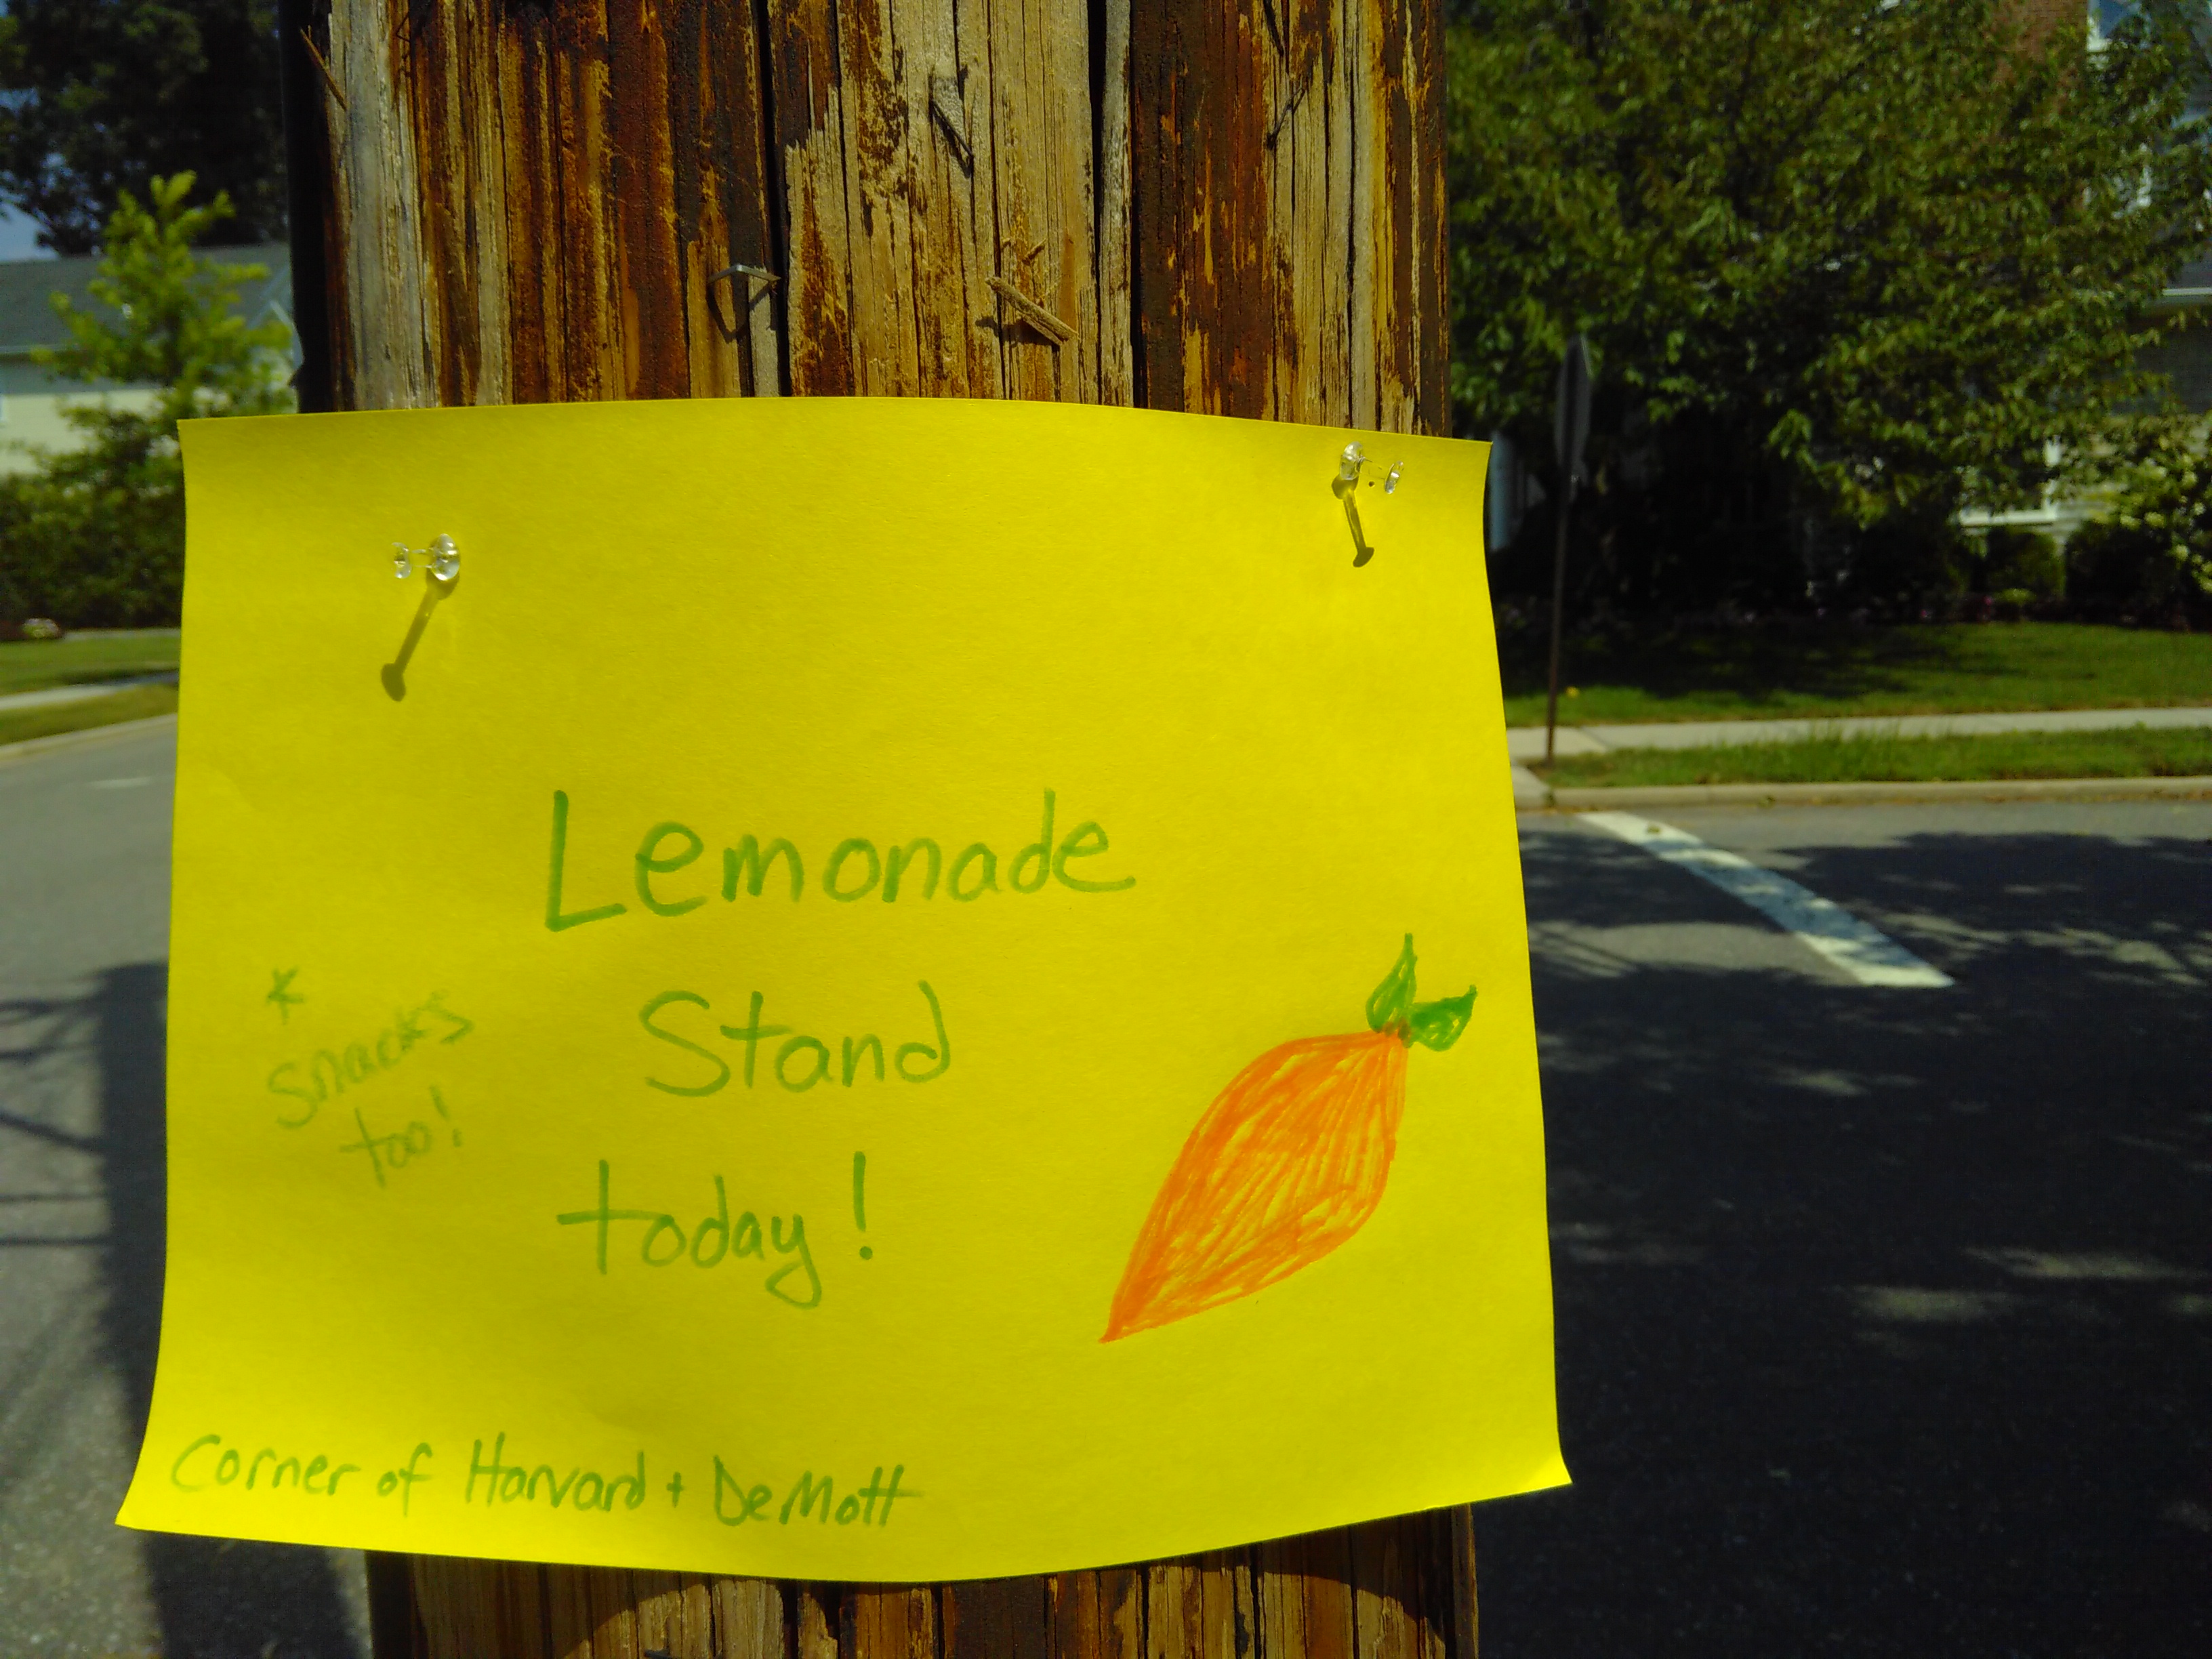 Lemonade
Stand
today!
*
Snacks
too!
Corner of Harvard + DeMott